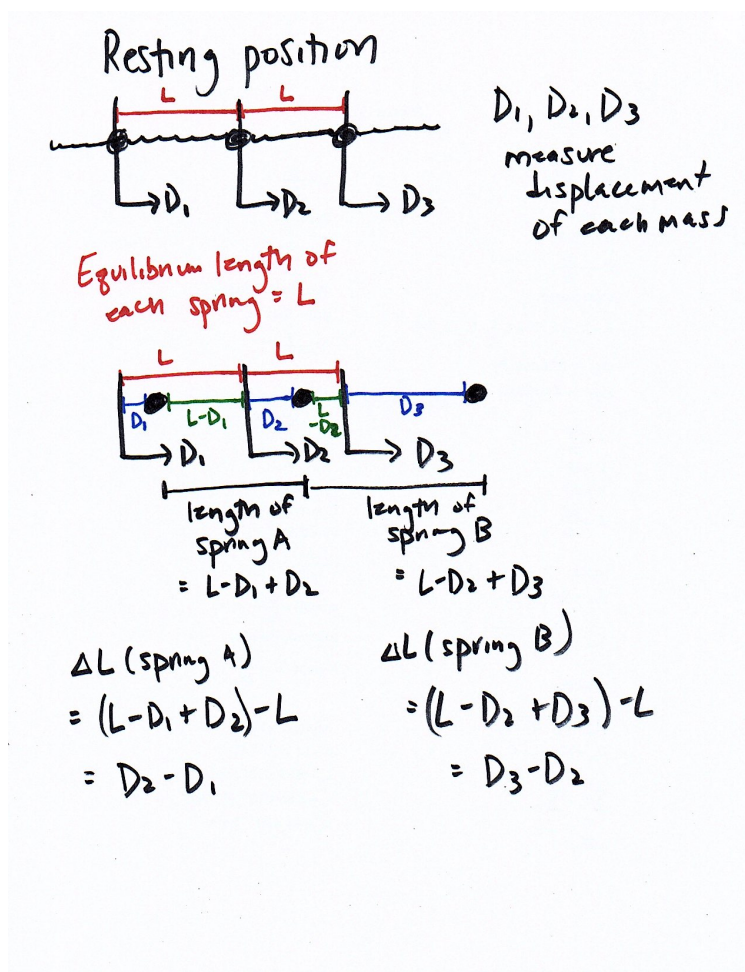 Resting position
L L
D₁, D₂, D₃
measure
displacement
of each mass
D₁ D₂ D₃
Equilibrium length of
each spring = L
L L
D₁ L-D₁ D₂ L
-D₂ D₃
D₁ D₂ D₃
length of
spring A
= L-D₁+D₂
length of
spring B
= L-D₂+D₃
ΔL (spring A)
= (L-D₁+D₂)-L
= D₂-D₁
ΔL (spring B)
= (L-D₂+D₃)-L
= D₃-D₂